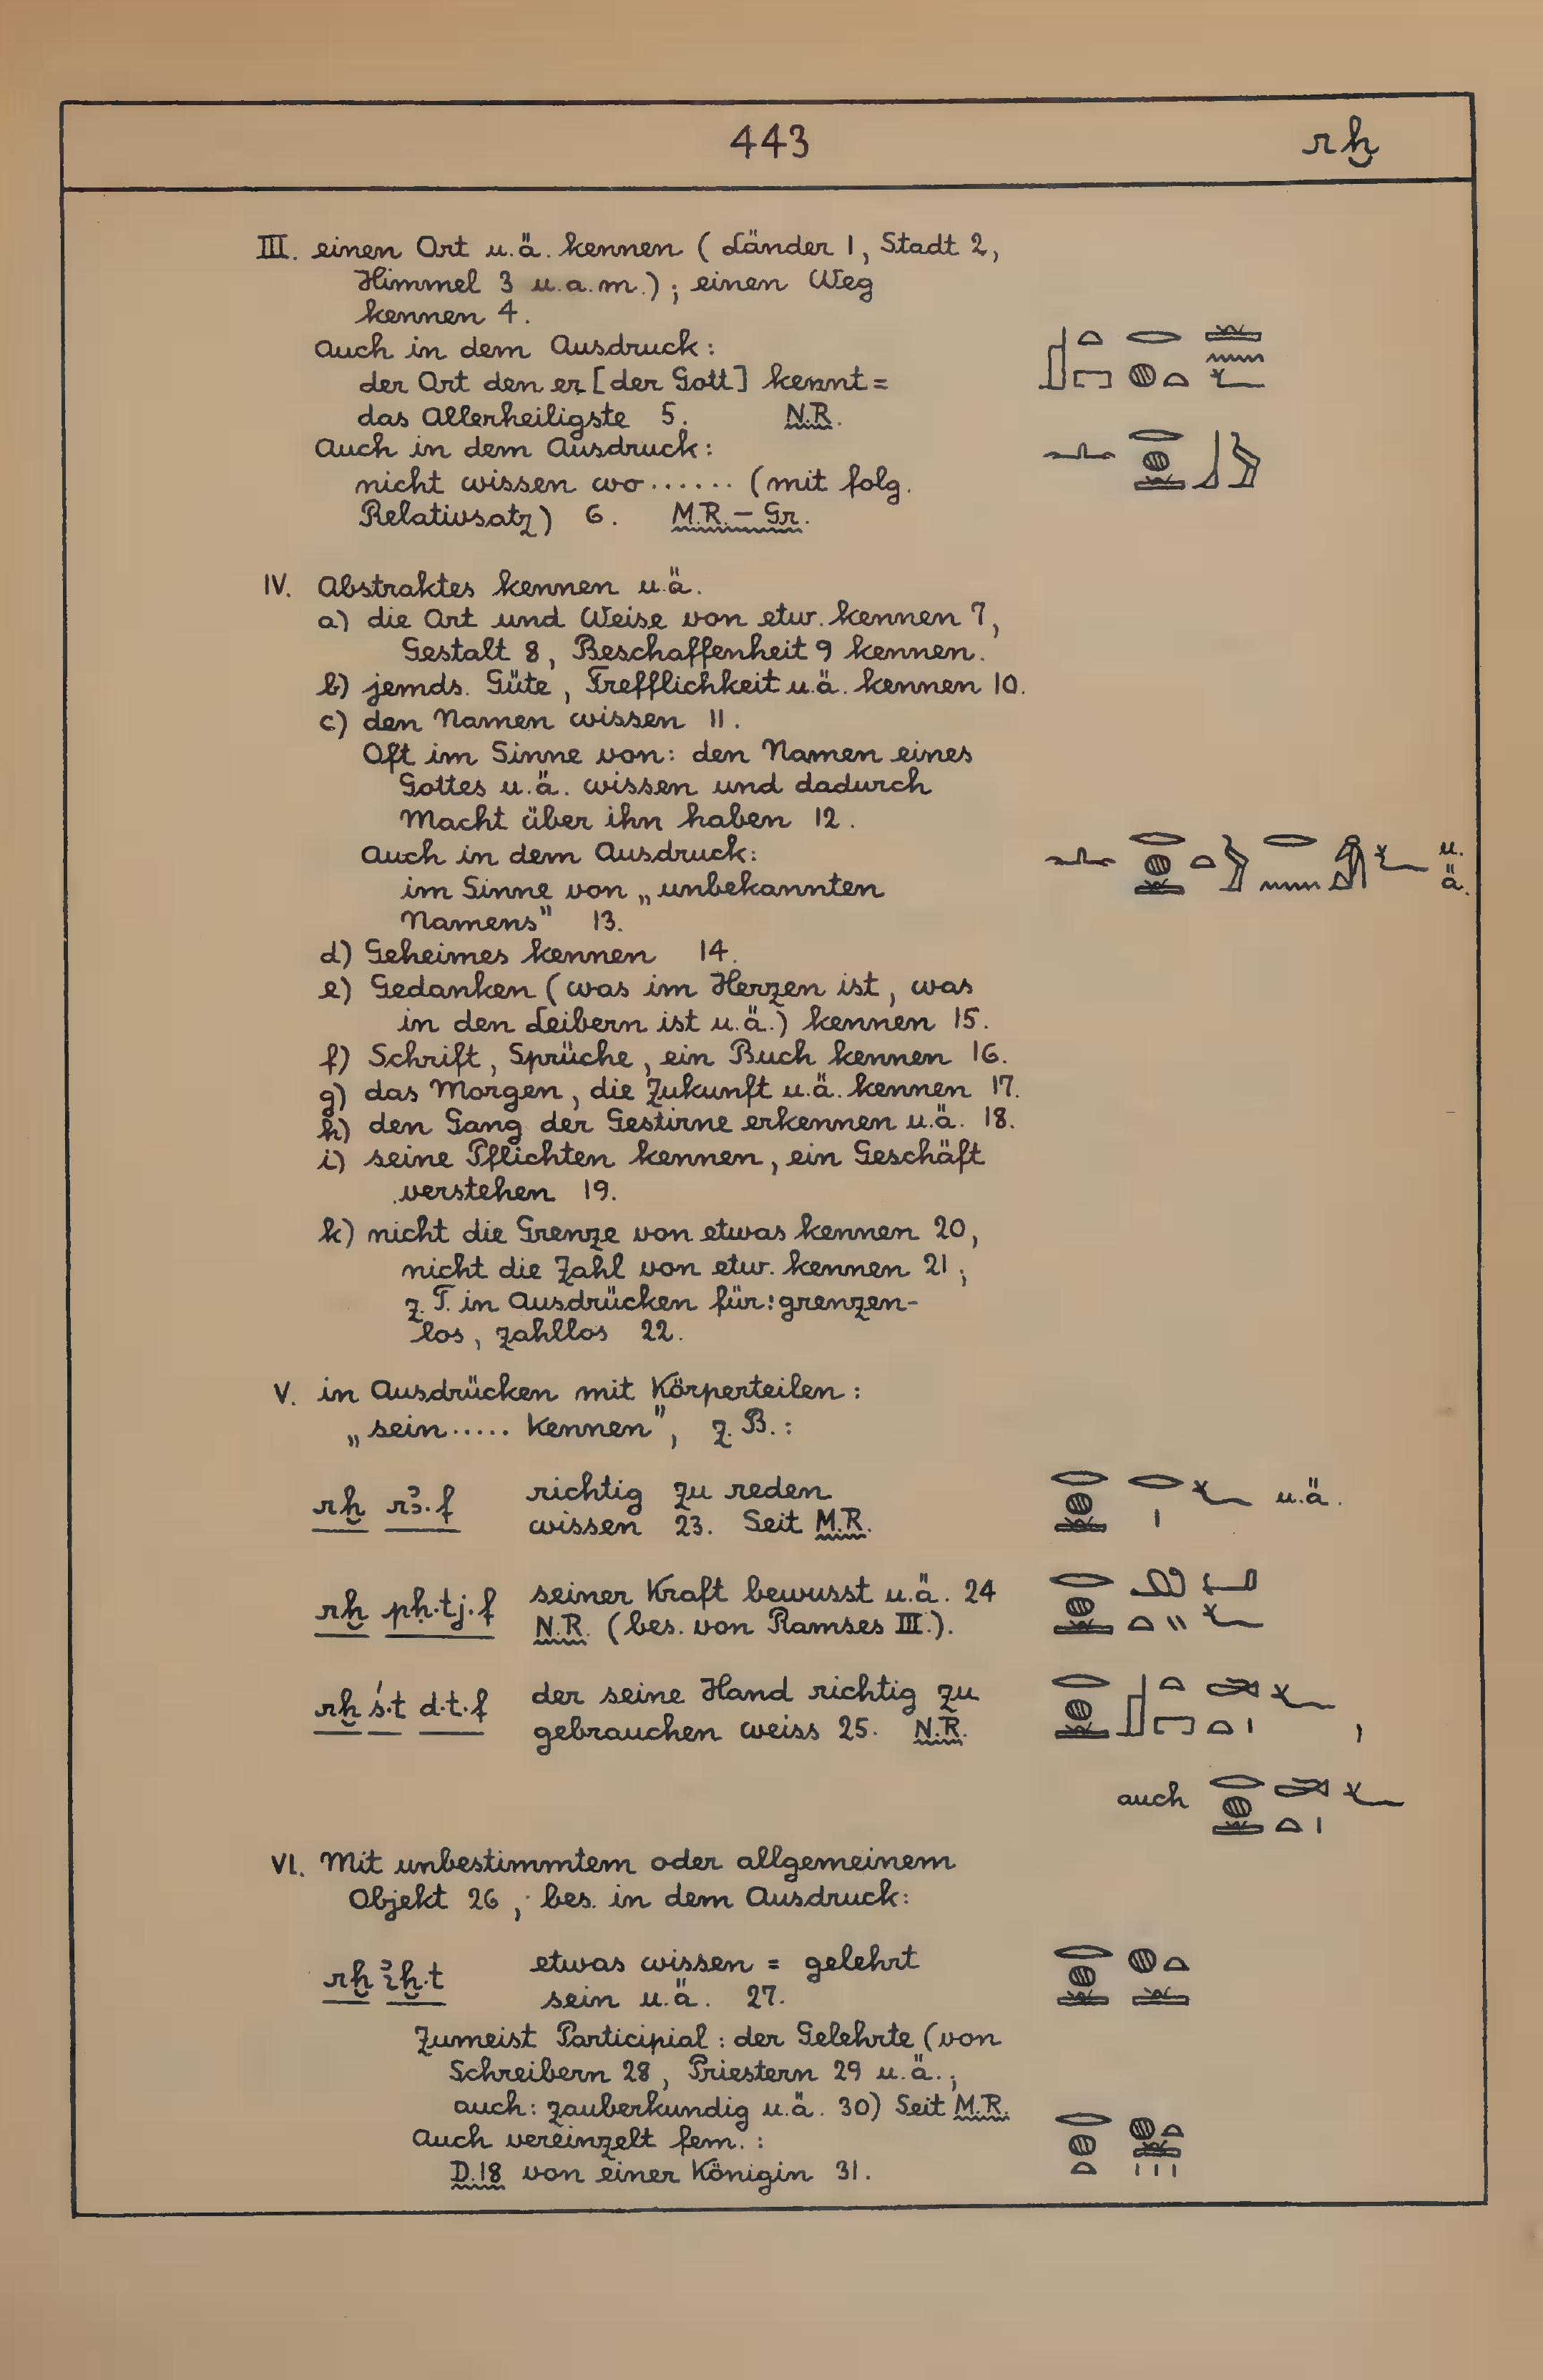 443 rḫ
III. einen Ort u.ä. kennen (Länder 1, Stadt 2,
Himmel 3 u.a.m.); einen Weg
kennen 4.
Auch in dem Ausdruck:
der Ort den er [der Gott] kennt =
das Allerheiligste 5. N.R.
Auch in dem Ausdruck:
nicht wissen wo ...... (mit folg.
Relativsatz) 6. M.R. – Gr.
IV. Abstraktes kennen u.ä.
a) die Art und Weise von etw. kennen 7,
Gestalt 8, Beschaffenheit 9 kennen.
b) jemds. Güte, Trefflichkeit u.ä. kennen 10.
c) den Namen wissen 11.
Oft im Sinne von: den Namen eines
Gottes u.ä. wissen und dadurch
Macht über ihn haben 12.
Auch in dem Ausdruck: u.
im Sinne von „unbekannten ä.
Namens" 13.
d) Geheimes kennen 14.
e) Gedanken (was im Herzen ist, was
in den Leibern ist u.ä.) kennen 15.
f) Schrift, Sprüche, ein Buch kennen 16.
g) das Morgen, die Zukunft u.ä. kennen 17.
h) den Gang der Gestirne erkennen u.ä. 18.
i) seine Pflichten kennen, ein Geschäft
verstehen 19.
k) nicht die Grenze von etwas kennen 20,
nicht die Zahl von etw. kennen 21;
z.T. in Ausdrücken für: grenzen-
los, zahllos 22.
V. in Ausdrücken mit Körperteilen:
„sein ..... kennen", z.B.:
rḫ rꜣ.f richtig zu reden u.ä.
wissen 23. Seit M.R.
rḫ pḥ.tj.f seiner Kraft bewusst u.ä. 24
N.R. (bes. von Ramses III.).
rḫ ś.t d.t.f der seine Hand richtig zu
gebrauchen weiss 25. N.R. ,
auch
VI. Mit unbestimmtem oder allgemeinem
Objekt 26, bes. in dem Ausdruck:
rḫ iꜣḫ.t etwas wissen = gelehrt
sein u.ä. 27.
Zumeist Participial: der Gelehrte (von
Schreibern 28, Priestern 29 u.ä.;
auch: zauberkundig u.ä. 30) Seit M.R.
Auch vereinzelt fem.:
D.18 von einer Königin 31.